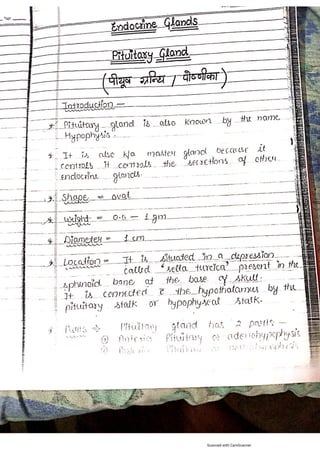 Endocrine Glands
Pituitary Gland
(पीयूष ग्रन्थि / पीयूणीका)
Introduction —
* Pituitary gland is also known by the name
Hypophysis.
* It is also k/a master gland because it
controls it controls the secretions of other
endocrine glands.
* Shape = oval
* Weight = 0.5 – 1 gm
* Diameter = 1 cm
* Location = It is situated in a depression
called "sella turcica" present in the
sphenoid bone at the base of skull.
It is connected c̄ the hypothalamus by the
pituitary stalk or hypophyseal stalk.
* Parts → Pituitary gland has 2 parts —
① Anterior Pituitary or adenohypophysis
② Posterior Pituitary or
Scanned with CamScanner